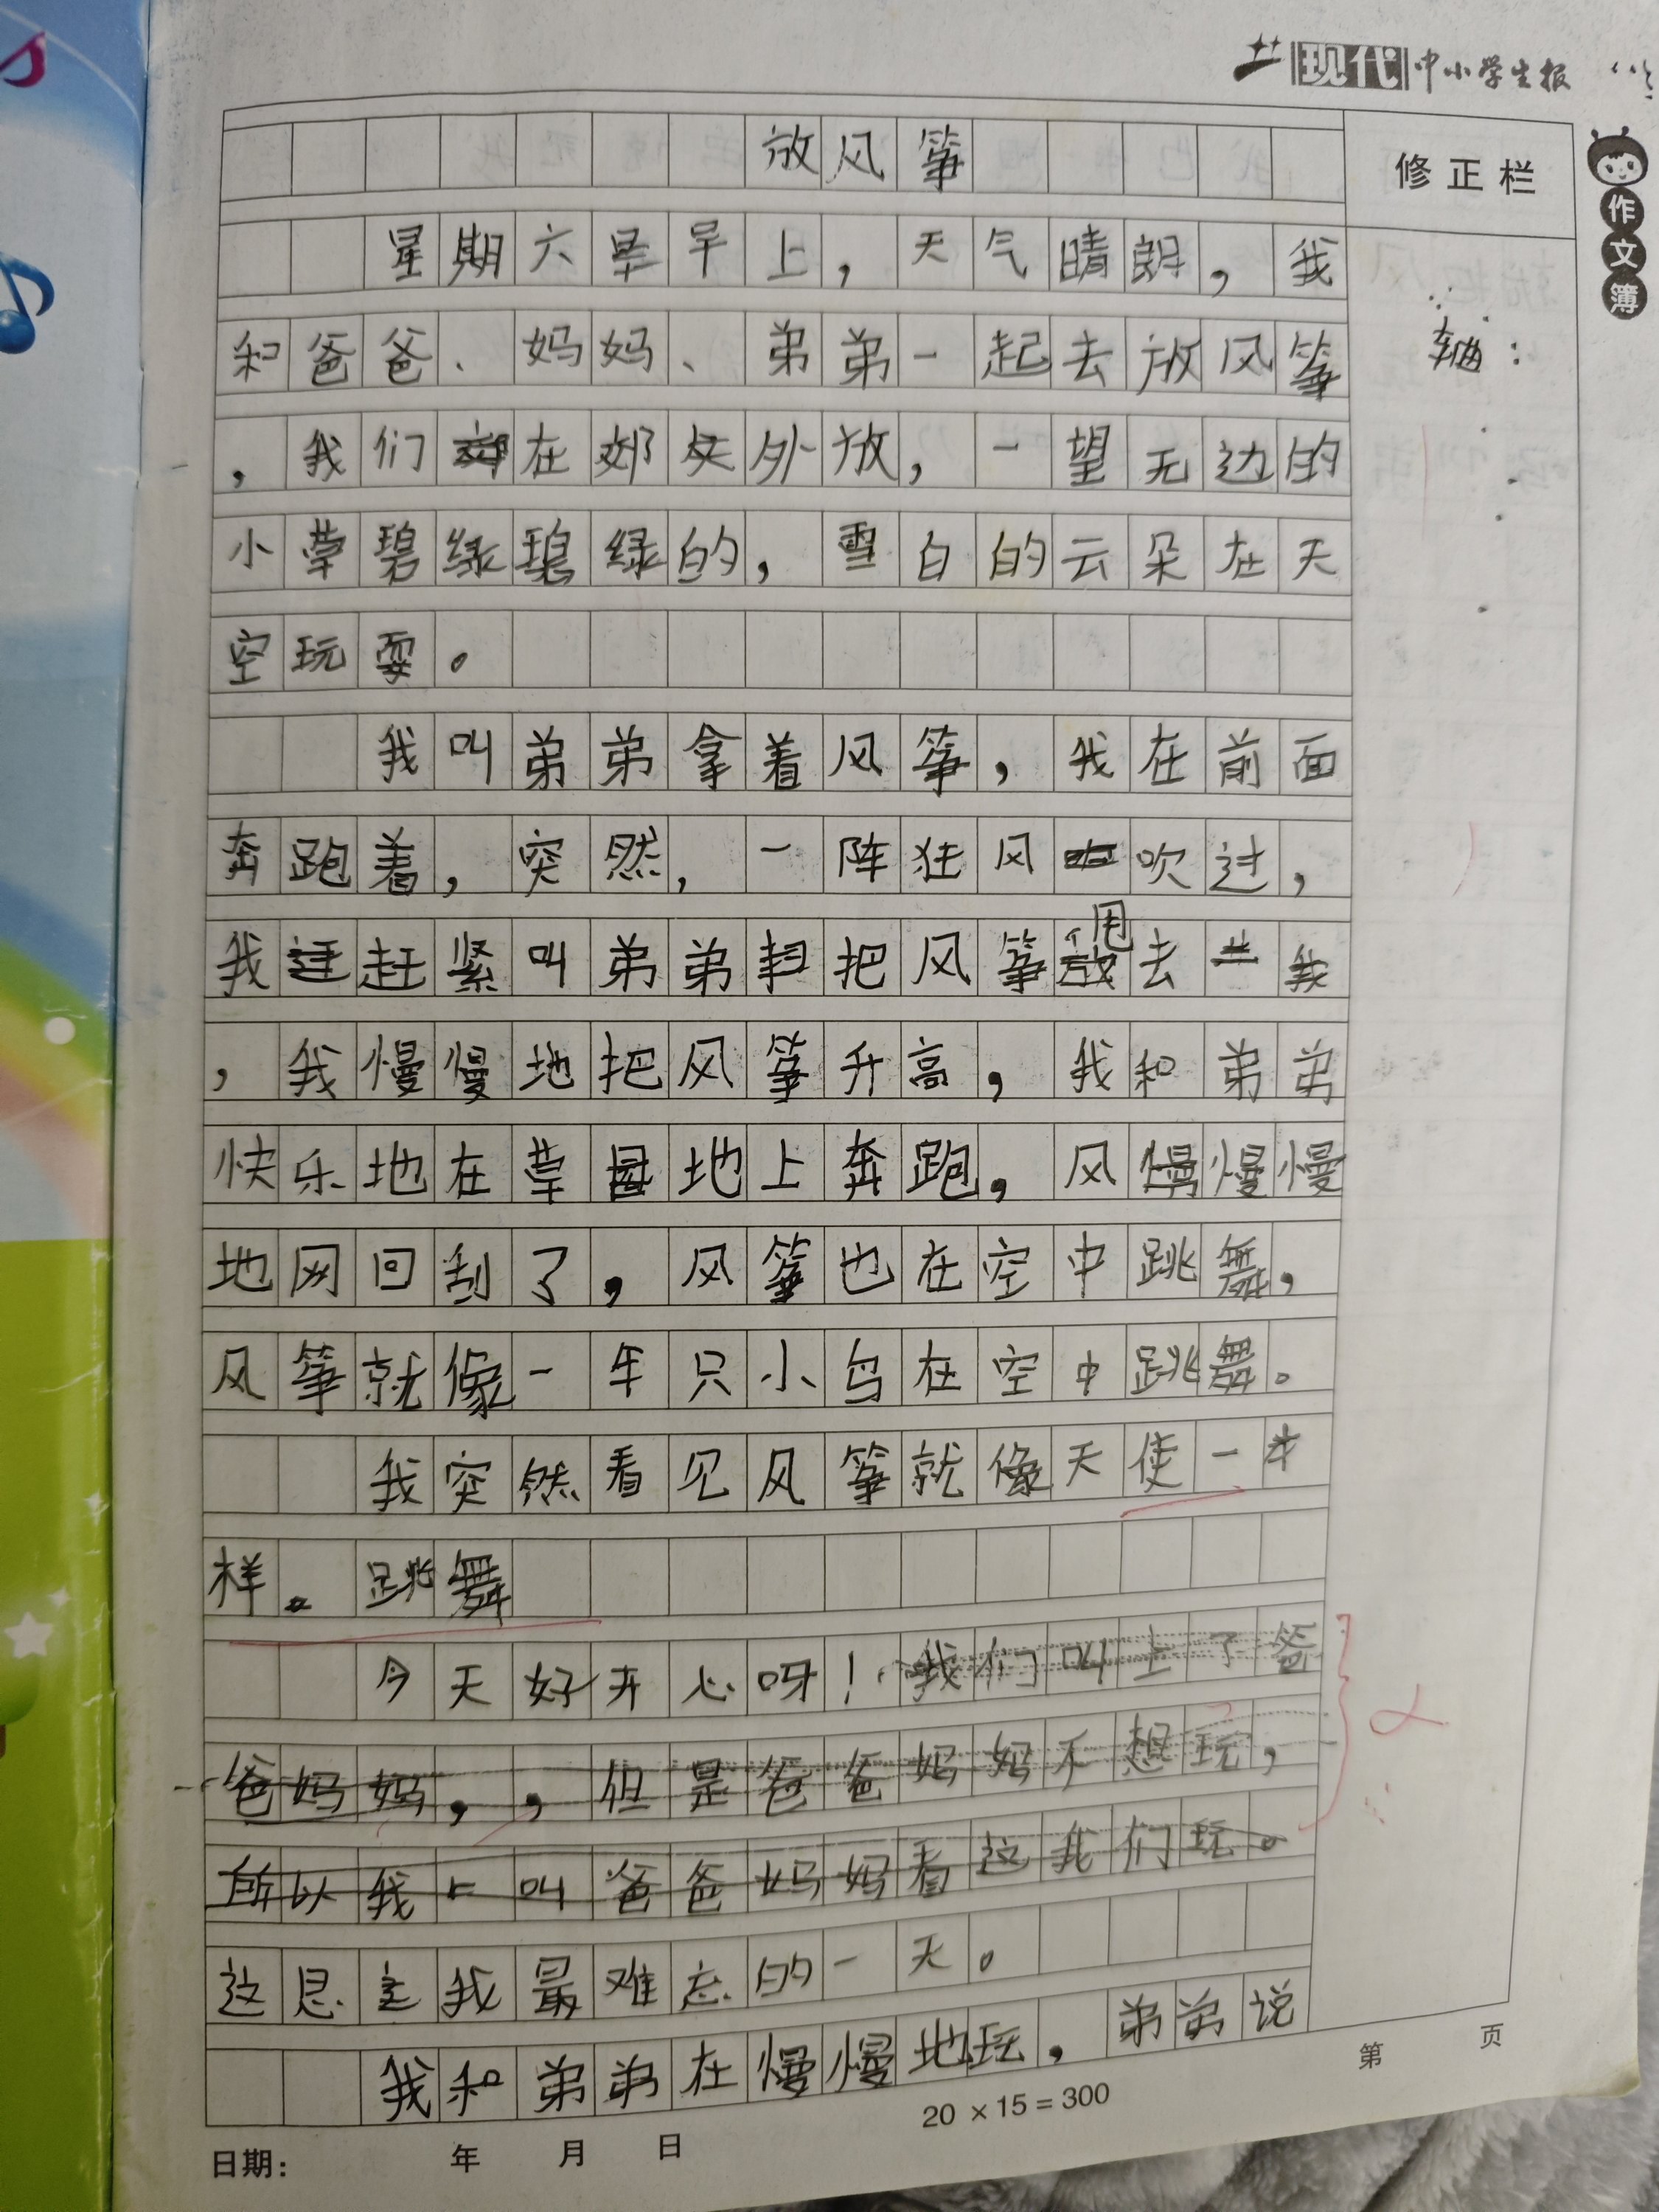 现代中小学生报
修正栏
作文簿
放风筝
星期六早上，天气晴朗，我
和爸爸、妈妈、弟弟一起去放风筝
，我们在郊外放，一望无边的
小草碧绿碧绿的，雪白的云朵在天
空玩耍。
我叫弟弟拿着风筝，我在前面
奔跑着，突然，一阵狂风吹过，
我赶紧叫弟弟把风筝甩去
，我慢慢地把风筝升高，我和弟弟
快乐地在草地上奔跑，风慢慢
地网回刮了，风筝也在空中跳舞，
风筝就像一只小鸟在空中跳舞。
我突然看见风筝就像天使一
样。跳舞
今天好开心呀！我们叫上了爸
爸妈妈，，但是爸爸妈妈不想玩，
所以我叫爸爸妈妈看这我们玩。
这是我最难忘的一天。
我和弟弟在慢慢地玩，弟弟说
20×15=300
第 页
日期： 年 月 日